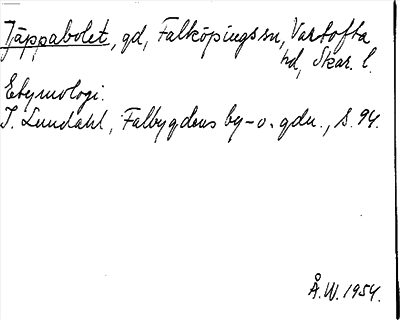 Jäppabolet, gd, Falköpings sn, Vartofta
hd, Skar. l.
Etymologi.
I. Lundahl, Falbygdens by- o. gdn., s. 94.
Å.W. 1954.